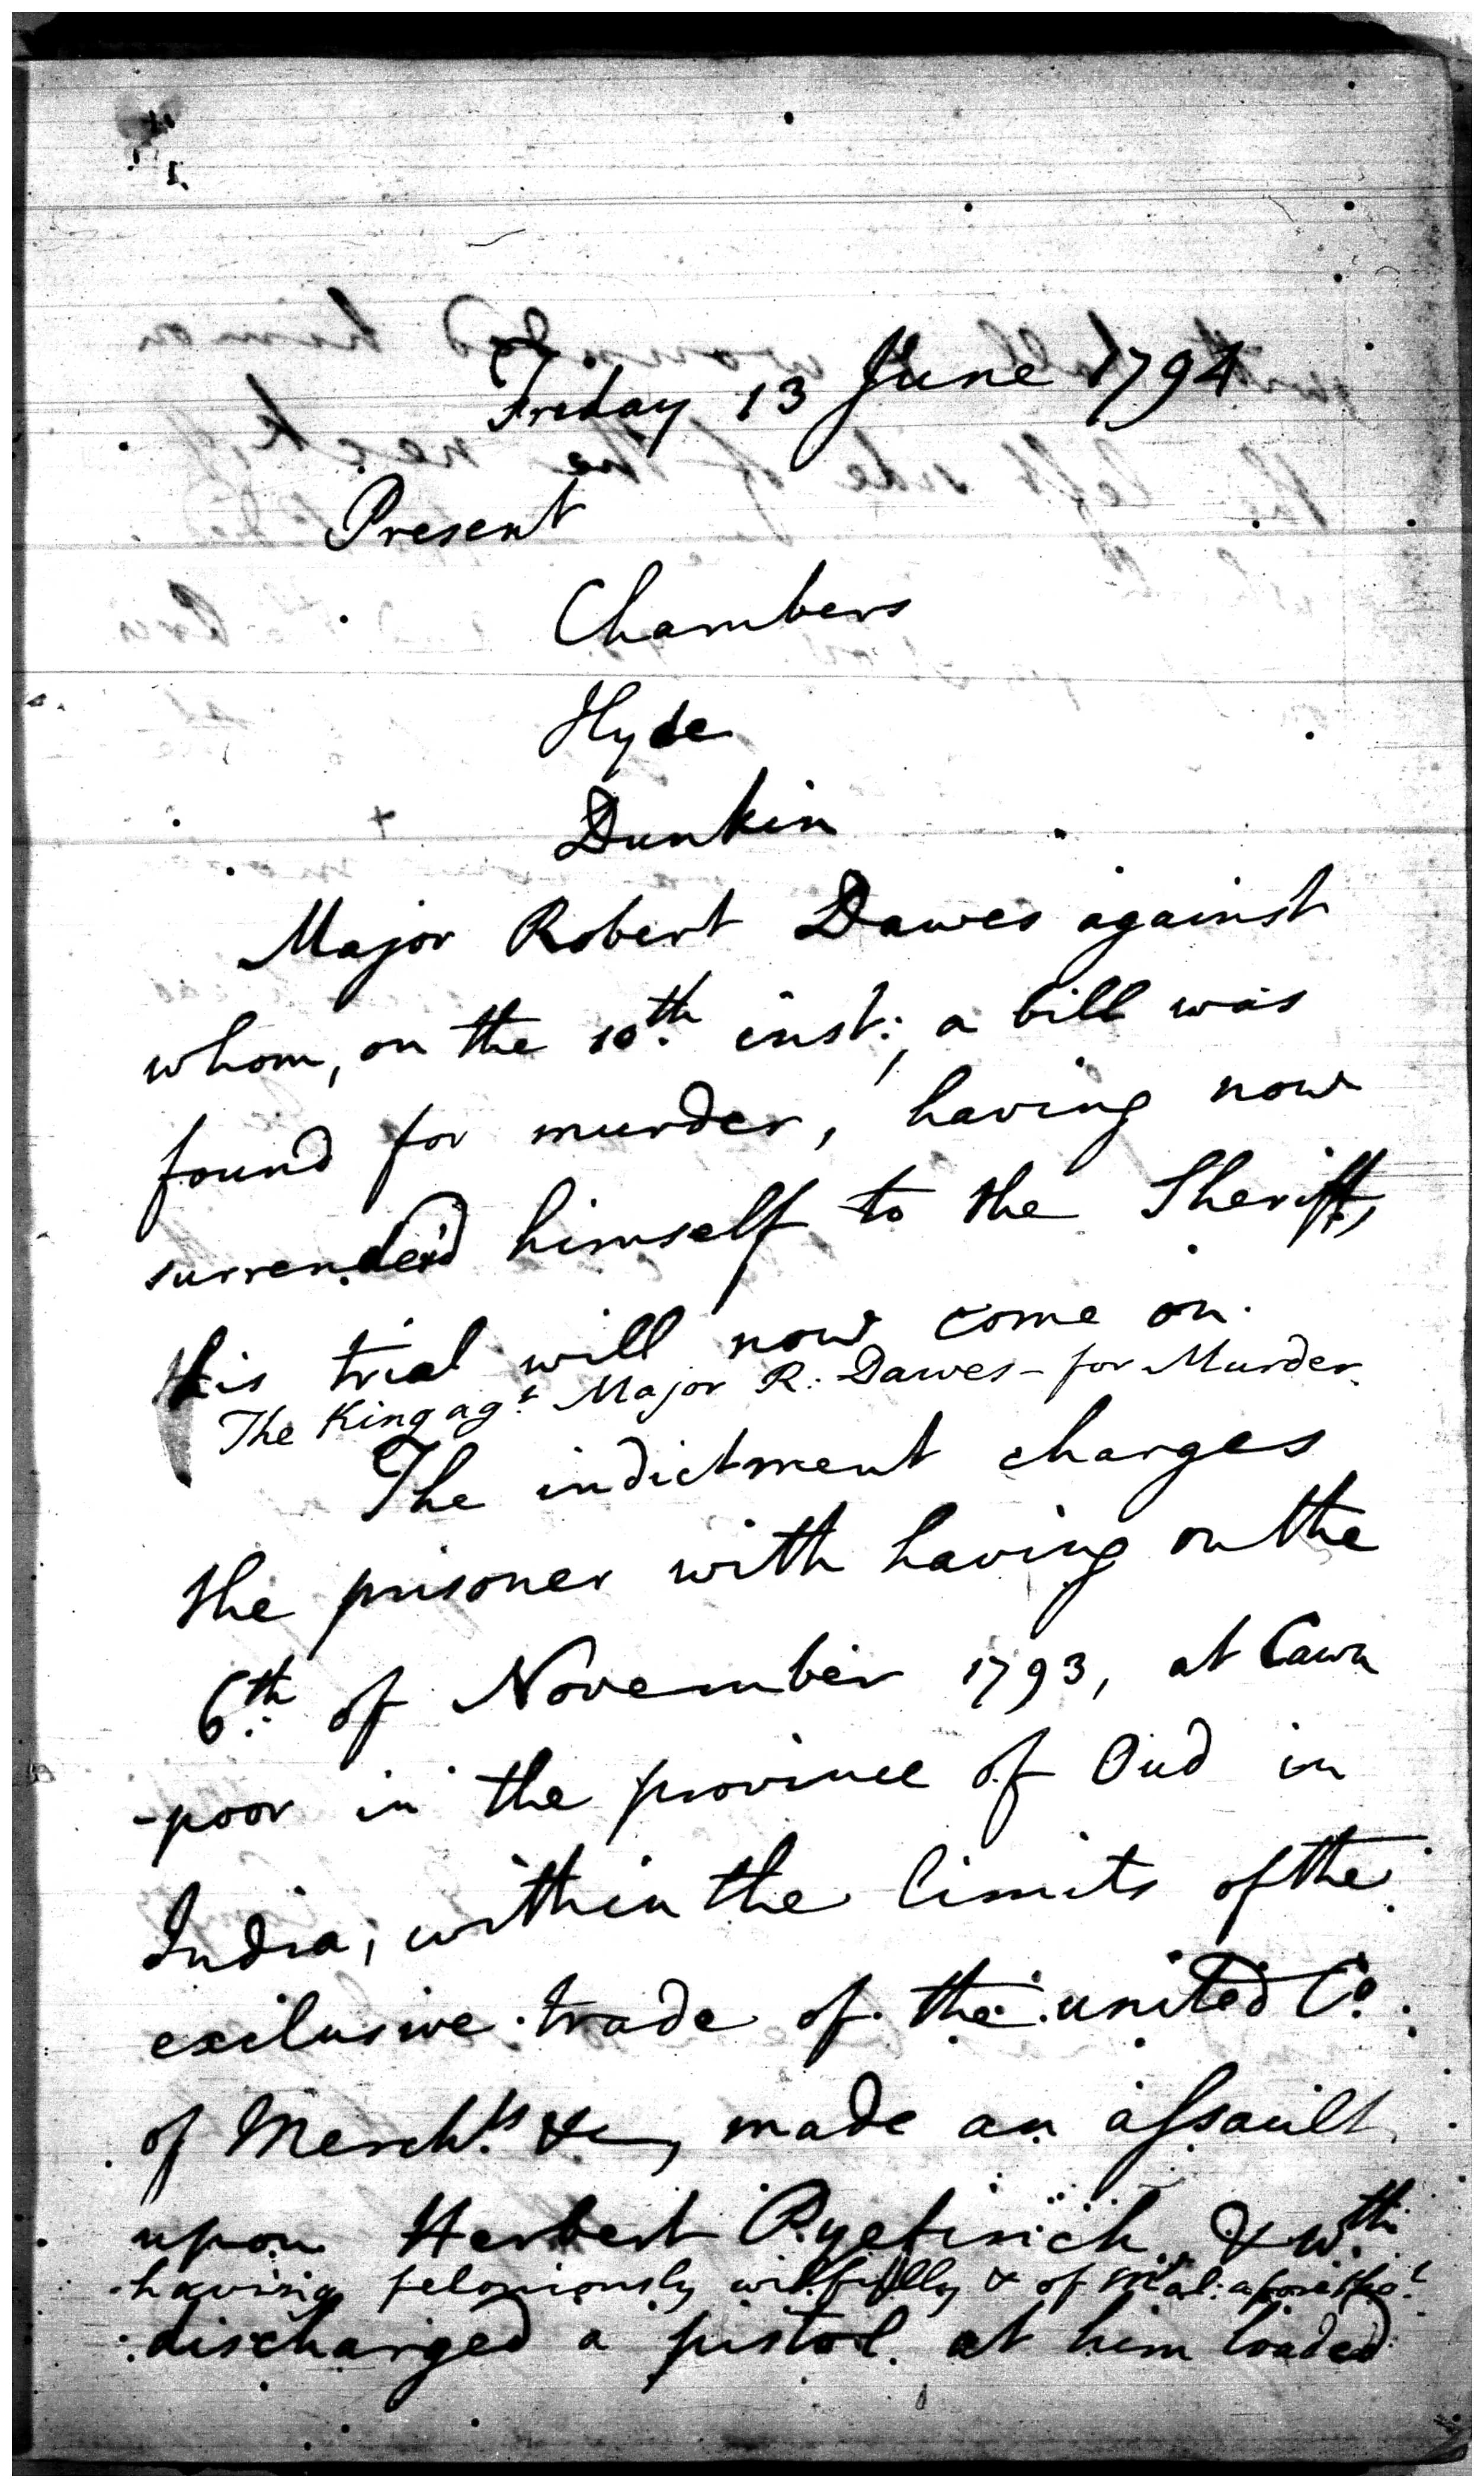 Friday 13 June 1794
Present
Chambers
Hyde
Dunkin
Major Robert Dawes against
whom, on the 10th inst:, a bill was
found for murder, having now
surrender'd himself to the Sheriff,
his trial will now come on.
The King agt Major R. Dawes - for Murder.
The indictment charges
the prisoner with having on the
6th of November 1793, at Cawn
-poor in the province of Oud in
India, within the limits of the
exclusive trade of the united Co.
of Merchts &c, made an assault
upon Herbert & wth
having feloniously willfully & of mal: aforethot
discharged a pistol at him loaded